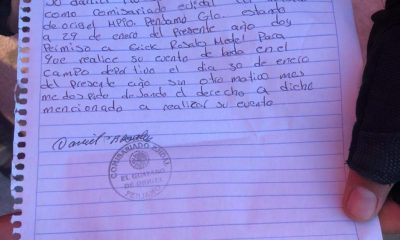 como Comisariado ejidal
de ocisa MPIO. Penjamo Gto. estando
a 29 de enero del Presente año doy
Permiso a Erick Rosales Medel Para
que realice su evento de boda en el
campo deportivo el dia 30 de enero
del Presente año sin otro motivo me
despido dejando el derecho a dicho
mencionado a realizar su evento
Daniel
COMISARIADO EJIDAL
EL GUAYABO
DE ORIGEL
PENJAMO